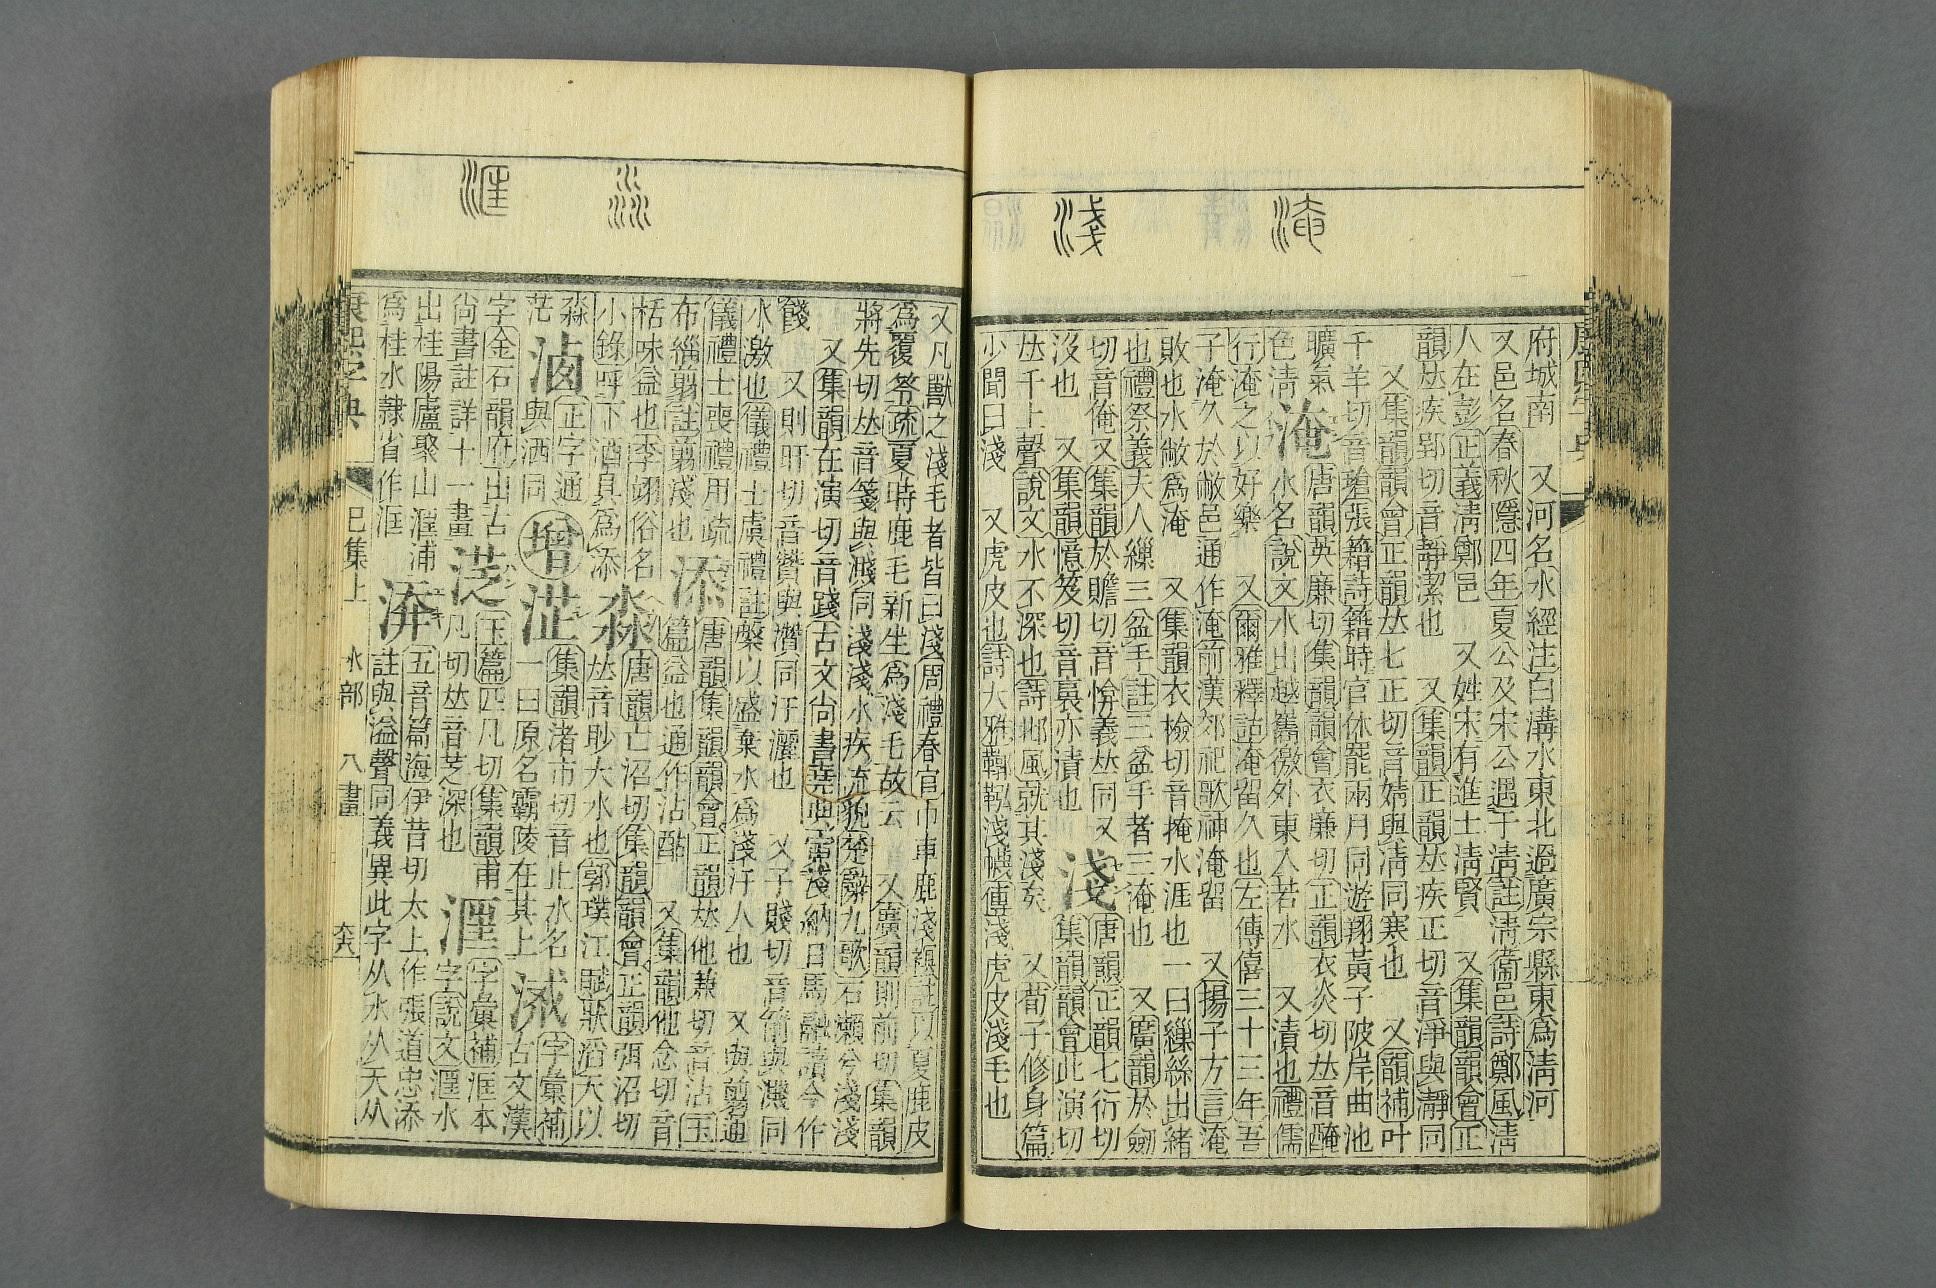 淹
淺
府城南　又河名水經注白溝水東北過廣宗縣東爲淸河
又邑名春秋隱四年夏公及宋公遇于淸註淸衞邑詩鄭風淸
人在彭正義淸鄭邑　又姓宋有進士淸賢　又集韻韻會正
韻𠀤疾郢切音靜潔也　又集韻正韻𠀤疾正切音淨與瀞同
又集韻韻會正韻𠀤七正切音婧與凊同寒也　又韻補叶
千羊切音瑲張籍詩籍時官休罷兩月同遊翔黃子陂岸曲池
曠氣
色淸　淹　唐韻英廉切集韻韻會衣廉切正韻衣炎切𠀤音醃
水名說文水出越巂徼外東入若水　又漬也禮儒
行淹之以好樂　又爾雅釋詁淹留久也左傳僖三十三年吾
子淹久於敝邑通作淹前漢郊祀歌神淹留　又揚子方言淹
敗也水敝爲淹　又集韻衣檢切音掩水涯也一曰繅絲出緒
也禮祭義夫人繅三盆手註三盆手者三淹也　又廣韻於劒
切音俺又集韻於贍切音㤿義𠀤同又
沒也　又集韻憶笈切音裛亦漬也　淺　唐韻正韻七衍切
集韻韻會此演切
𠀤千上聲說文水不深也詩邶風就其淺矣　又荀子修身篇
少聞曰淺　又虎皮也詩大雅鞹鞃淺幭傳淺虎皮淺毛也
又凡獸之淺毛者皆曰淺周禮春官巾車鹿淺𧜀註以夏鹿皮
爲覆笭疏夏時鹿毛新生爲淺毛故云　又廣韻則前切集韻
將先切𠀤音箋與濺同淺淺水疾流貌楚辭九歌石瀨兮淺淺
又集韻在演切音踐古文尙書堯典寅淺納日馬融讀今作
餞　又則旰切音贊與灒同汙灑也　又子賤切音箭與濺同
水激也儀禮士虞禮註槃以盛棄水爲淺汙人也　又與剪通
儀禮士喪禮用疏
布緇翦註翦淺也　添　唐韻集韻韻會正韻𠀤他兼切音沾玉
篇益也通作沾酟　又集韻他念切音
栝味益也李翊俗名
小錄呼下酒具爲添　淼　唐韻亡沼切集韻韻會正韻弭沼切
𠀤音眇大水也郭璞江賦狀滔天以
淼
茫　滷　正字通
與洒同　增　淽　集韻渚市切音止水名
一曰原名霸陵在其上　㳦　字彙補
古文漢
字金石韻府出古
尙書註詳十一畫　㴀　玉篇匹凡切集韻甫
凡切𠀤音芝深也　涯　字彙補滙本
字說文滙水
出桂陽廬聚山滙浦
爲桂水隸省作滙　㳰　五音篇海伊昔切太上作張道忠添
註與溢聲同義異此字从水从天从
康熙字典　巳集上　水部　八畫